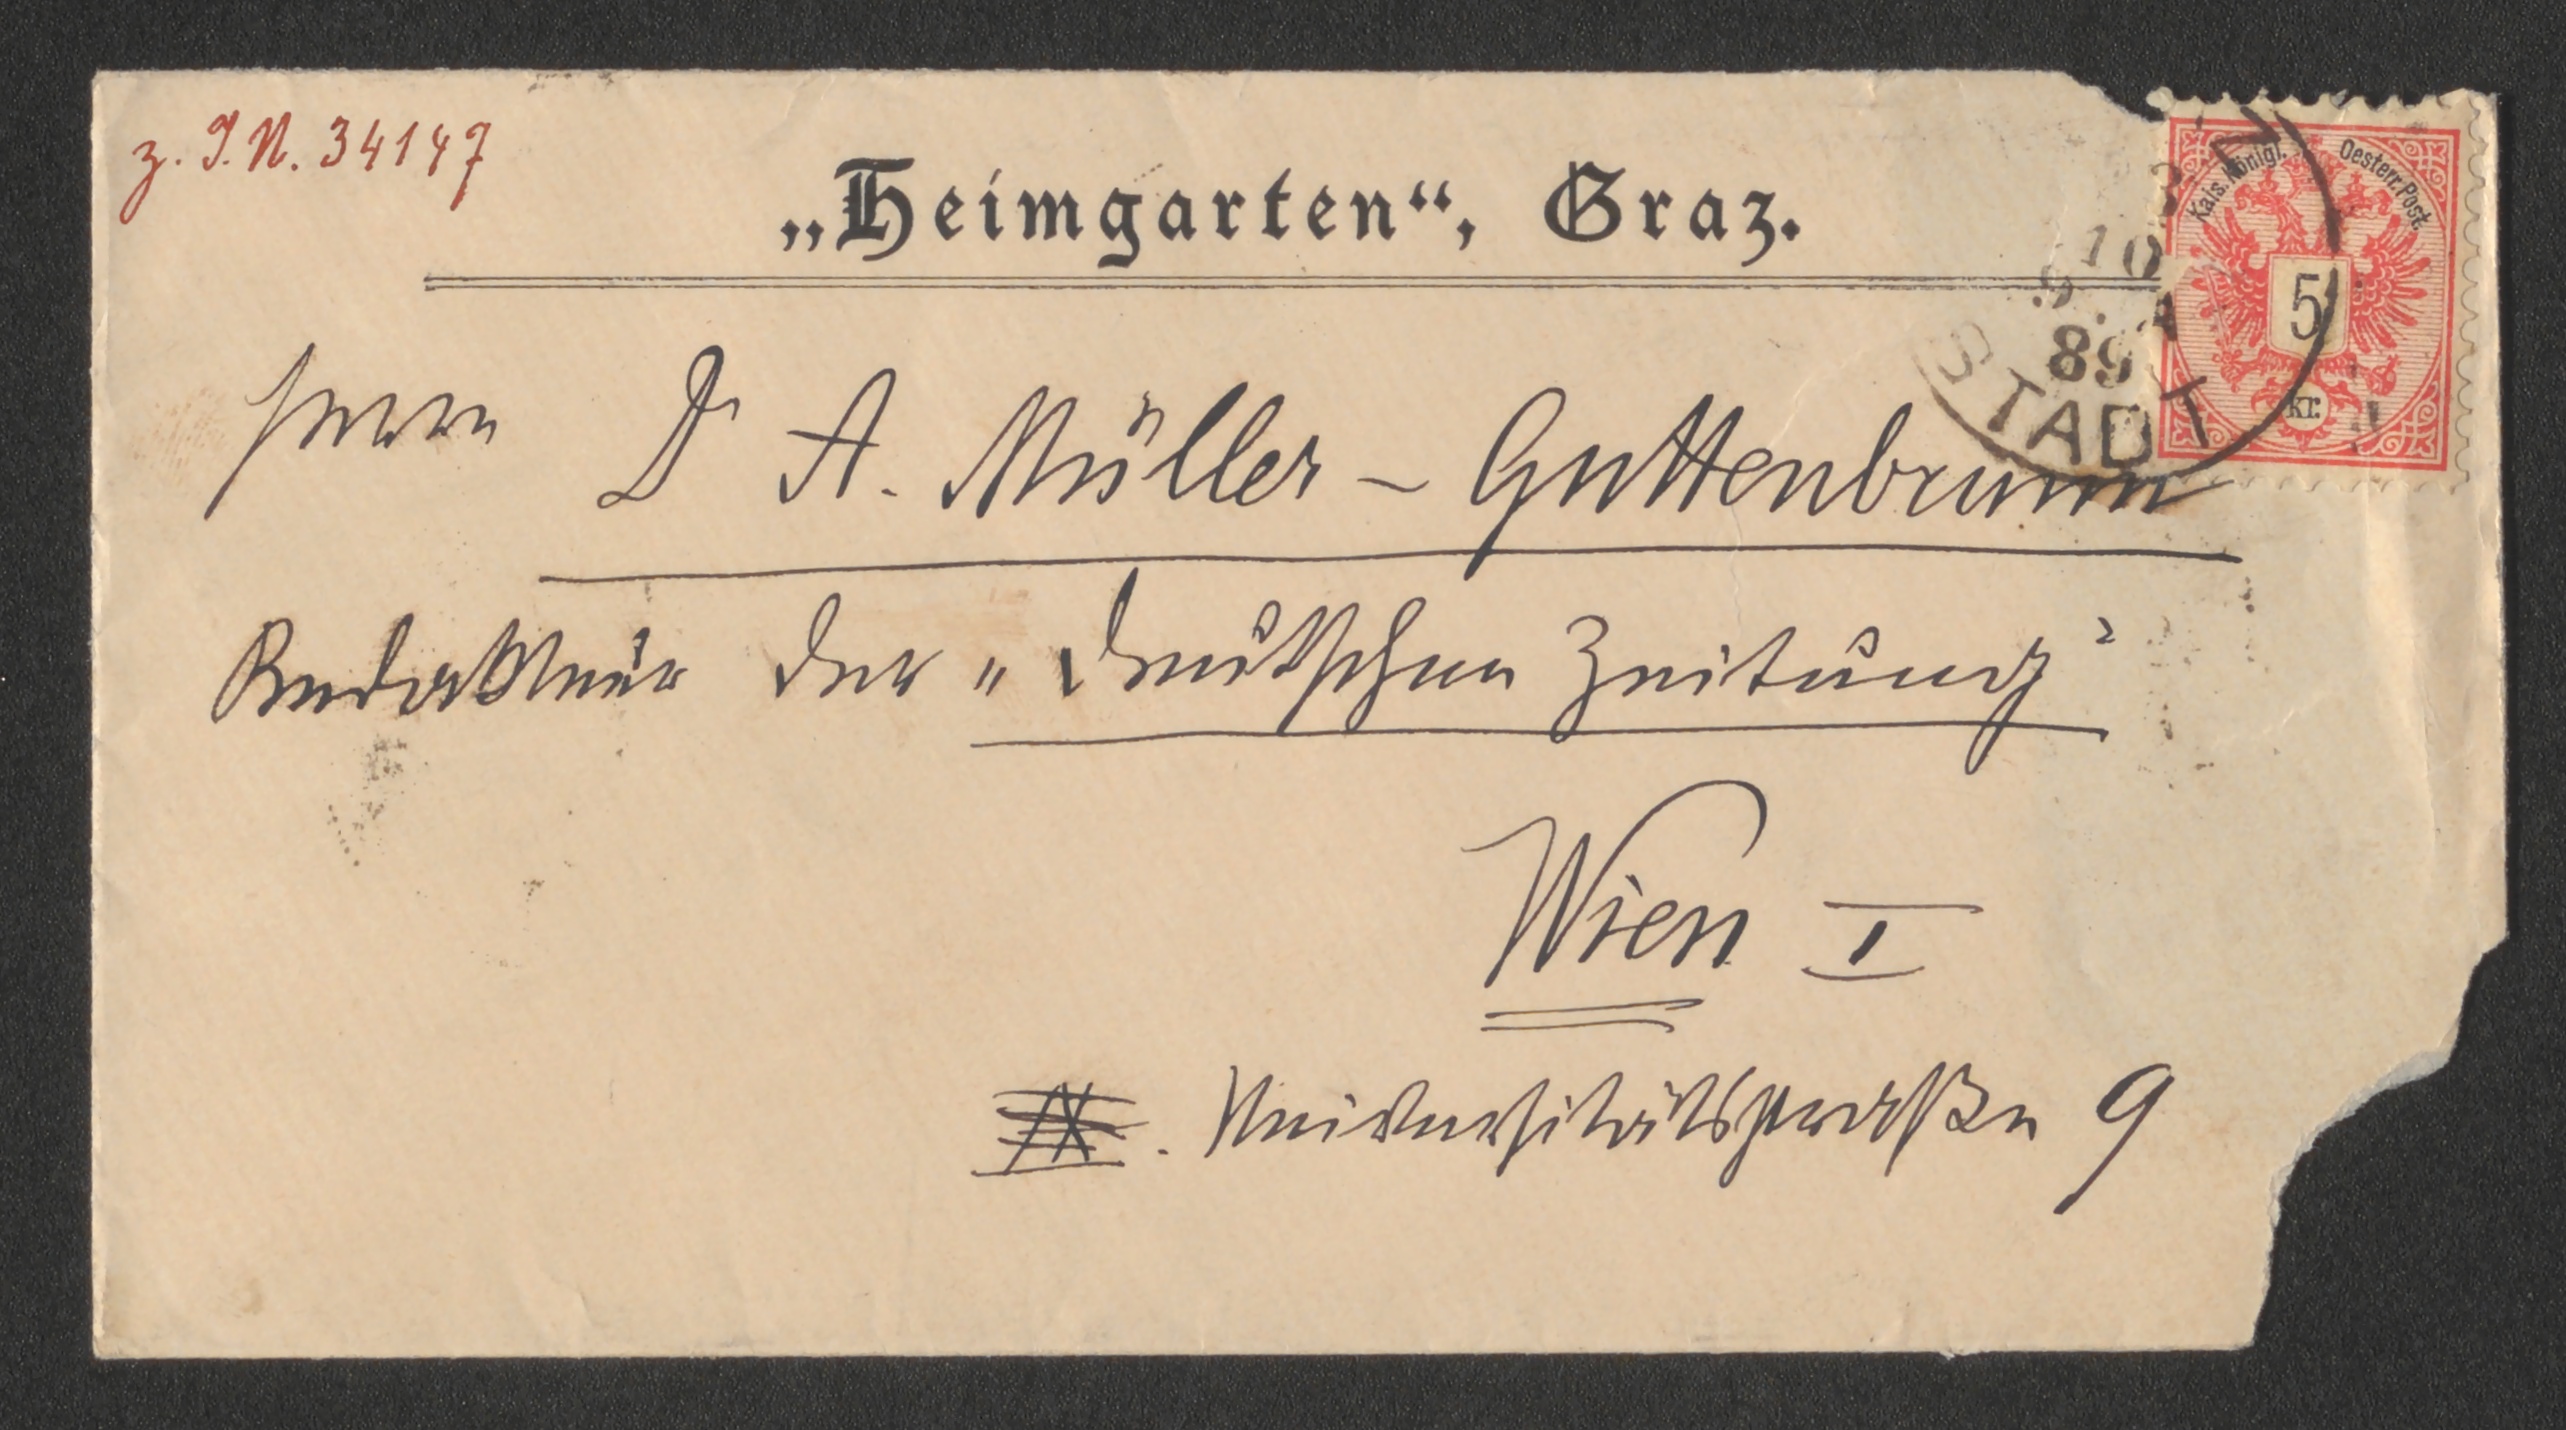 z. I.N. 34147
„Heimgarten“, Graz.
Kais. Königl. Oesterr. Post.
5
kr.
10
9.
89
STADT
Herrn Dr A. Müller-Guttenbrunn
Redakteur der „Deutschen Zeitung“
Wien I
. Universitätsstraße 9